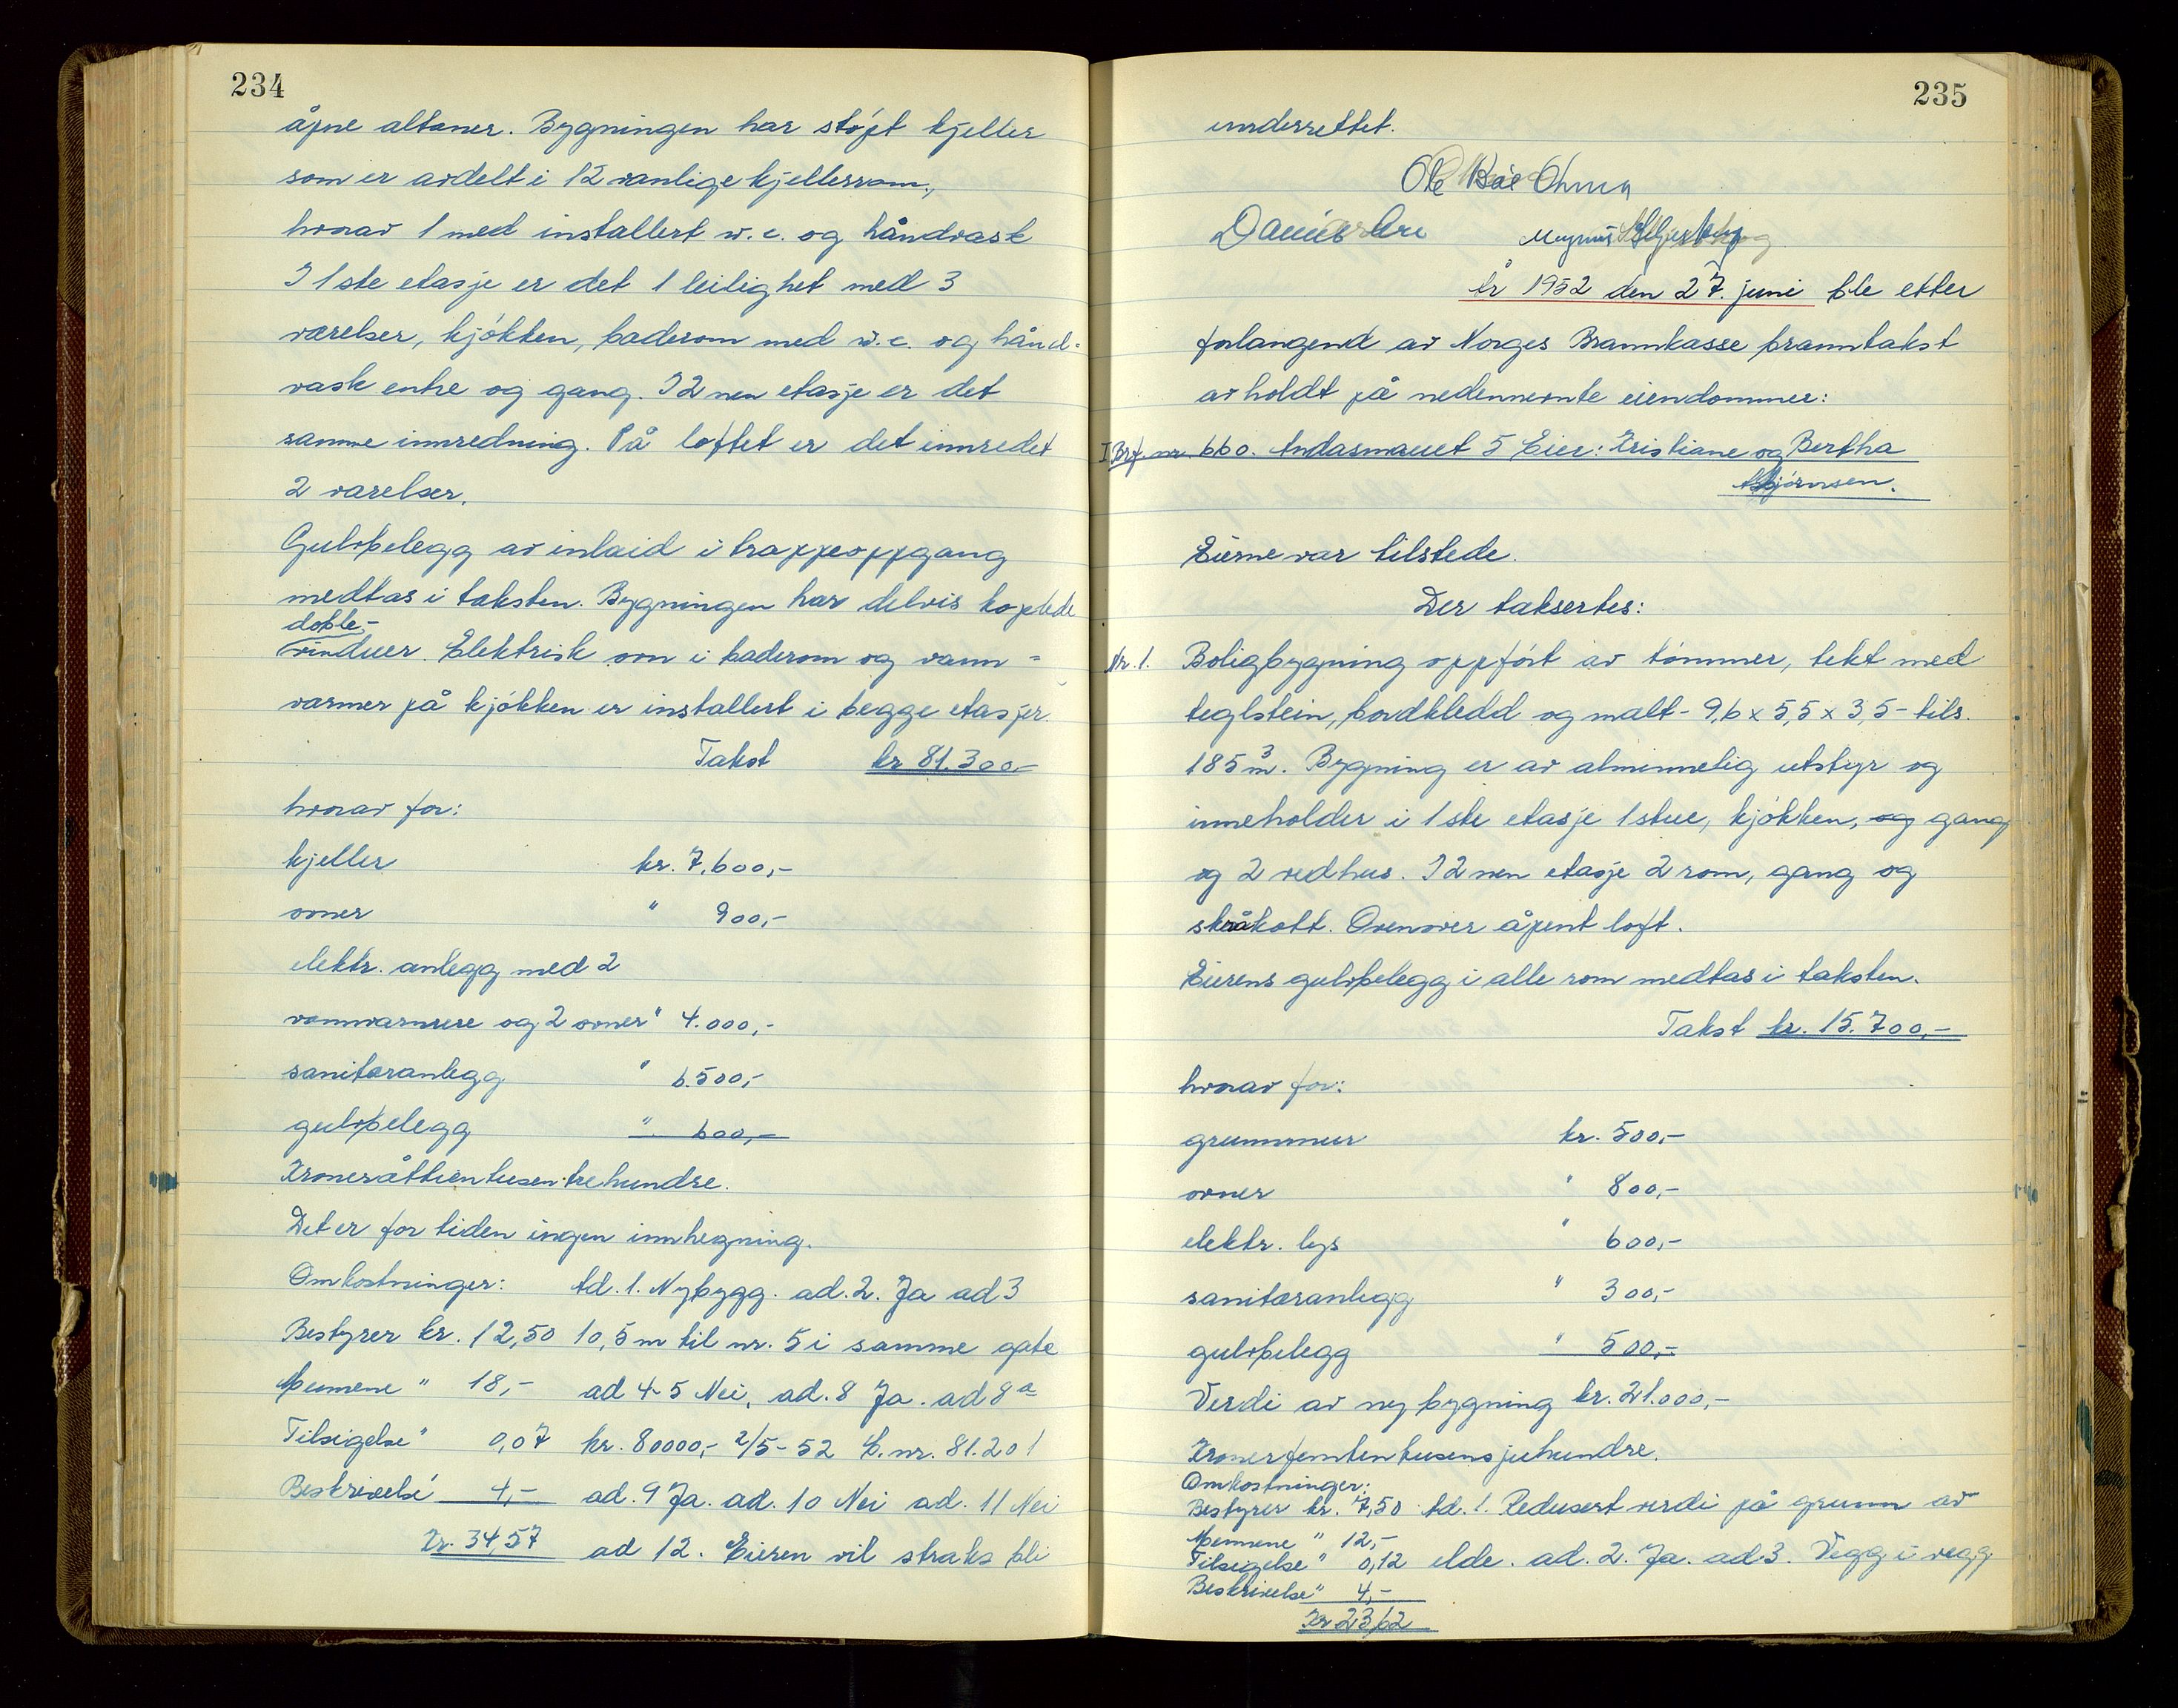 234
åpne altaner. Bygningen har støpt kjeller
som er avdelt i 12 vanlige kjellerrom,
hvorav 1 med installert w.c. og håndvask
I 1ste etasje er det 1 leilighet med 3
værelser, kjøkken, baderom med w.c. og hånd-
vask entre og gang. I 2nen etasje er det
samme innredning. På loftet er det innredet
2 værelser.
Gulvbelegg av inlaid i trappeoppgang
medtas i taksten. Bygningen har delvis koplede
doble-
vinduer. Elektrisk ovn i baderom og vann-
varmer på kjøkken er installert i begge etasjer.
Takst kr 81.300,-
hvorav for:
kjeller kr. 7.600,-
ovner " 900,-
elektr. anlegg med 2
vannvarmere og 2 ovner " 4.000,-
sanitæranlegg " 6.500,-
gulvbelegg " 600,-
Kroneråttientusentrehundre.
Det er for tiden ingen innhegning.
Omkostninger: Ad. 1. Nybygg. ad. 2. Ja ad 3
Bestyrer kr. 12,50 10,5 m til nr. 5 i samme gate
Mennene " 18,- ad 4-5 Nei, ad. 8 Ja. ad 8a
Tilsigelse " 0,07 kr. 80000,- 2/5-52 L.nr. 81.201
Beskrivelse 4,- ad. 9 Ja. ad. 10 Nei ad. 11 Nei
Kr. 34,57 ad 12. Eieren vil straks bli
235
underrettet.
Ole Boe
Magnus
År 1952 den 27. juni ble etter
forlangend av Norges Brannkasse branntakst
avholdt på nedennevnte eiendommer:
I Brf. nr. 660. Andasmauet 5 Eier: Kristiane og Bertha
Asbjørnsen.
Eierne var tilstede.
Der taksertes:
Nr. 1. Boligbygning oppført av tømmer, tekt med
teglstein, bordkledd og malt - 9,6 x 5,5 x 3,5 - tils.
185 m3. Bygning er av alminnelig utstyr og
inneholder i 1ste etasje 1 stue, kjøkken, og gang
og 2 vedhus. I 2nen etasje 2 rom, gang og
skråkott. Ovenover åpent loft.
Eierens gulvbelegg i alle rom medtas i taksten.
Takst kr. 15.700,-
hvorav for:
grunnmur kr. 500,-
ovner " 800,-
elektr. lys " 600,-
sanitæranlegg " 300,-
gulvbelegg " 500,-
Verdi av ny bygning kr. 21.000,-
Kronerfemtentusensjuhundre.
Omkostninger:
Bestyrer kr. 7,50 Ad. 1. Redusert verdi på grunn av
Mennene " 12,-
Tilsigelse " 0,12 elde. ad. 2. Ja. ad. 3. Vegg i vegg
Beskrivelse " 4,-
Kr 23,62